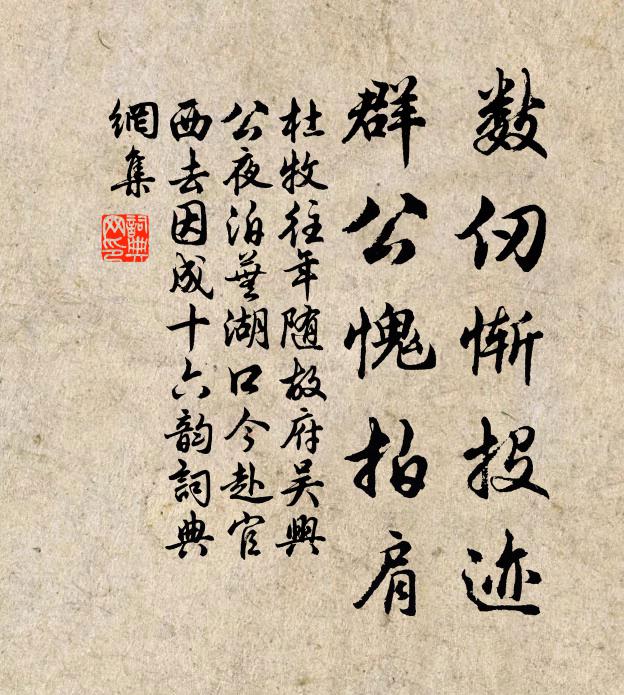 數仞慚投迹
群公愧拍肩
杜牧往年随故府吴興
公夜泊蕪湖口今赴官
西去因成十六韵詞典
網集
詞典
网印